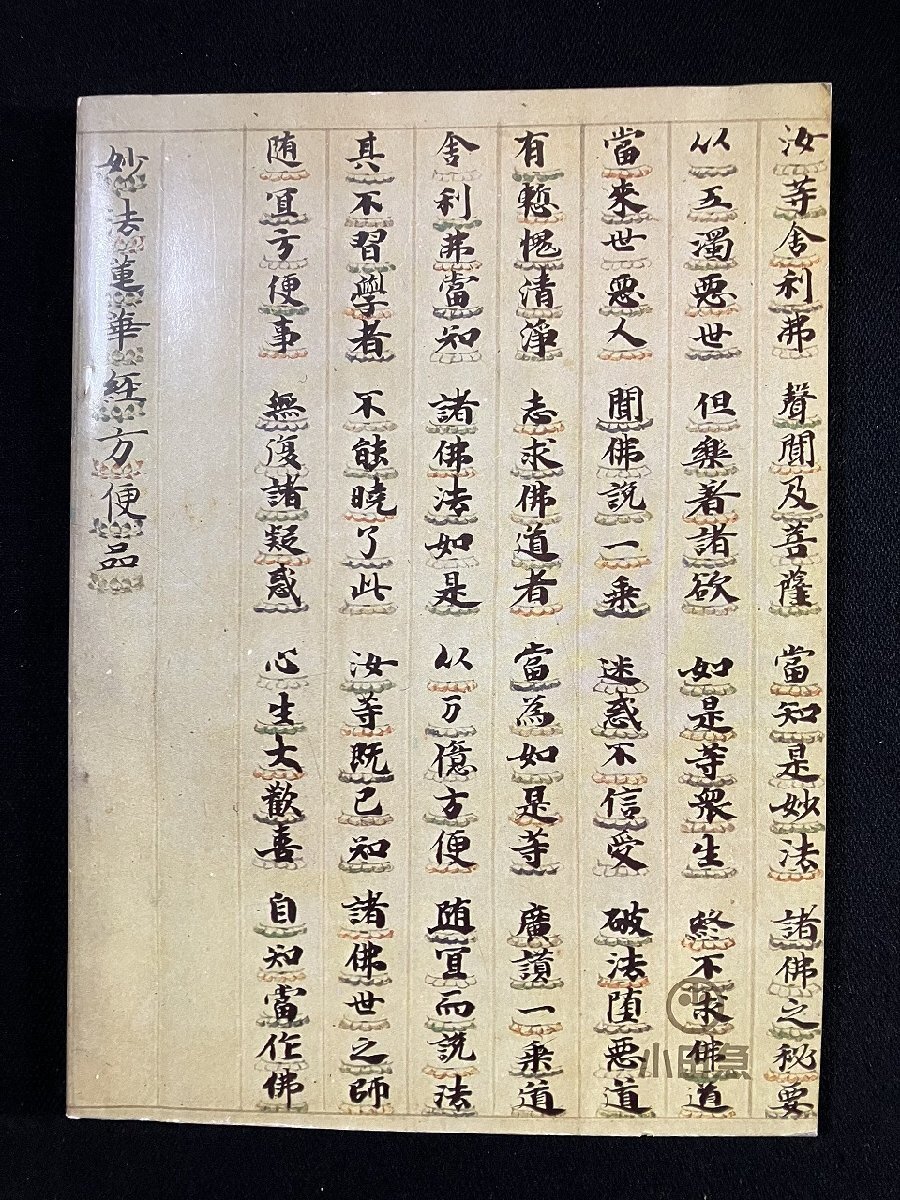 汝等舎利弗 聲聞及菩薩 當知是妙法 諸佛之秘要
以五濁悪世 但樂著諸欲 如是等衆生 終不求佛道
當来世悪人 聞佛説一乗 迷惑不信受 破法堕悪道
有慙愧清浄 志求佛道者 當為如是等 廣讃一乗道
舎利弗當知 諸佛法如是 以万億方便 随冝而説法
其不習學者 不能暁了此 汝等既已知 諸佛世之師
随冝方便事 無復諸疑惑 心生大歓喜 自知當作佛
妙法蓮華経方便品
小田急